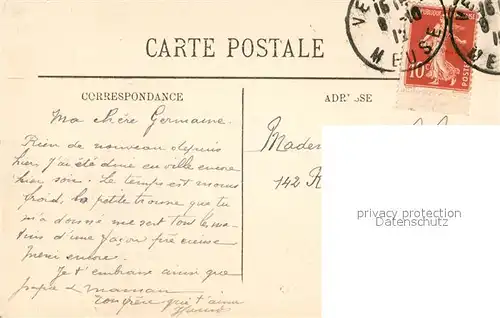 CARTE POSTALE
VE
16
MEUSE
REPUBLIQUE
10
POSTES
CORRESPONDANCE
ADRESSE
Ma chère Germaine.
Rien de nouveau depuis
hier. J'ai été diné en ville encore
hier soir. Le temps est moins
froid, la petite trousse que tu
m'a donné me sert tout les ma-
tins d'une façon précieuse
Merci encore.
Je t'embrasse ainsi que
papa & maman
Ton frère qui t'aime
Madem
142 R
privacy protection
Datenschutz